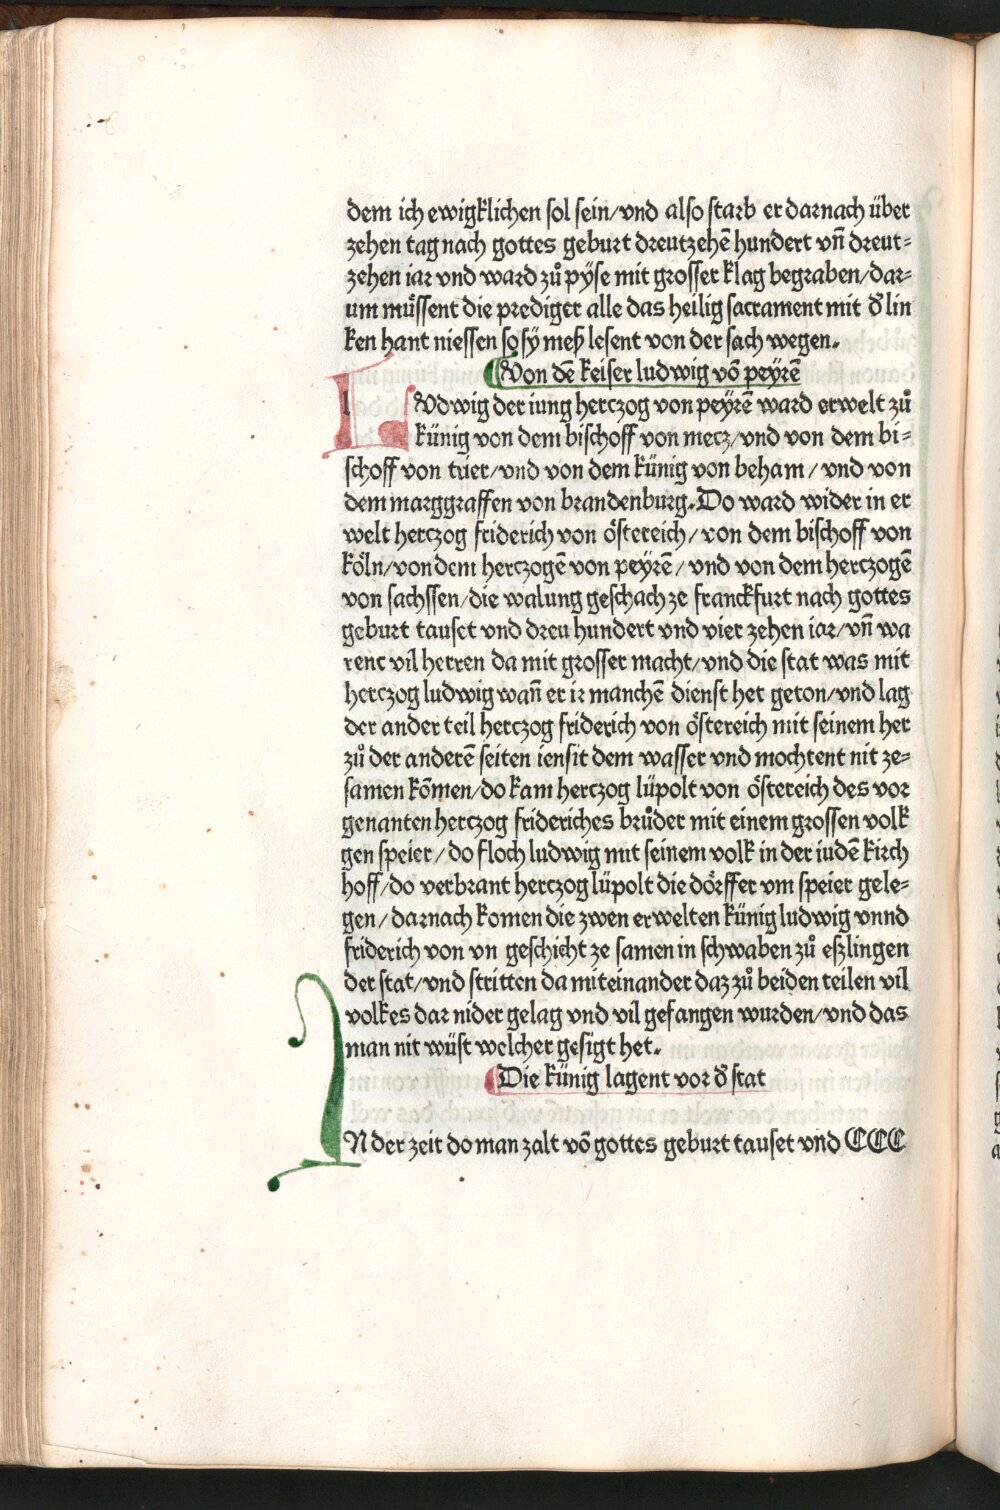 dem ich ewigklichen sol sein/vnd also starb er darnach über
zehen tag nach gottes geburt dreutzehē hundert vn̄ dreut⸗
zehen iar vnd ward zů pÿse mit grosser klag begraben/dar⸗
um můssent die prediger alle das heilig sacrament mit d̄ lin
ken hant niessen so sÿ meß lesent von der sach wegen.
Von dē keiser ludwig vō peÿrē
LVdwig der iung herczog von peÿrē ward erwelt zů
künig von dem bischoff von mecz/vnd von dem bi⸗
schoff von trier/vnd von dem künig von beham/vnd von
dem marggraffen von brandenburg. Do ward wider in er
welt herczog friderich von östereich/von dem bischoff von
köln/von dem herczogē von peÿrē/vnd von dem herczogē
von sachssen/die walung geschach ze franckfurt nach gottes
geburt tauset vnd dreu hundert vnd vier zehen iar/vn̄ wa
rent vil herren da mit grosser macht/vnd die stat was mit
herczog ludwig wan̄ er ir manchē dienst het geton/vnd lag
der ander teil herczog friderich von östereich mit seinem her
zů der anderē seiten iensit dem wasser vnd mochtent nit ze⸗
samen kōmen/do kam herczog lüpolt von östereich des vor
genanten herczog frideriches brůder mit einem grossen volk
gen speier/do floch ludwig mit seinem volk in der iudē kirch
hoff/do verbrant herczog lüpolt die dörffer vm speier gele⸗
gen/darnach komen die zwen erwelten künig ludwig vnnd
friderich von vn geschicht ze samen in schwaben zů eszlingen
der stat/vnd stritten da miteinander daz zů beiden teilen vil
volkes dar nider gelag vnd vil gefangen wurden/vnd das
man nit wüst welcher gesigt het.
Die künig lagent vor d̄ stat
IN der zeit do man zalt vō gottes geburt tauset vnd CCC